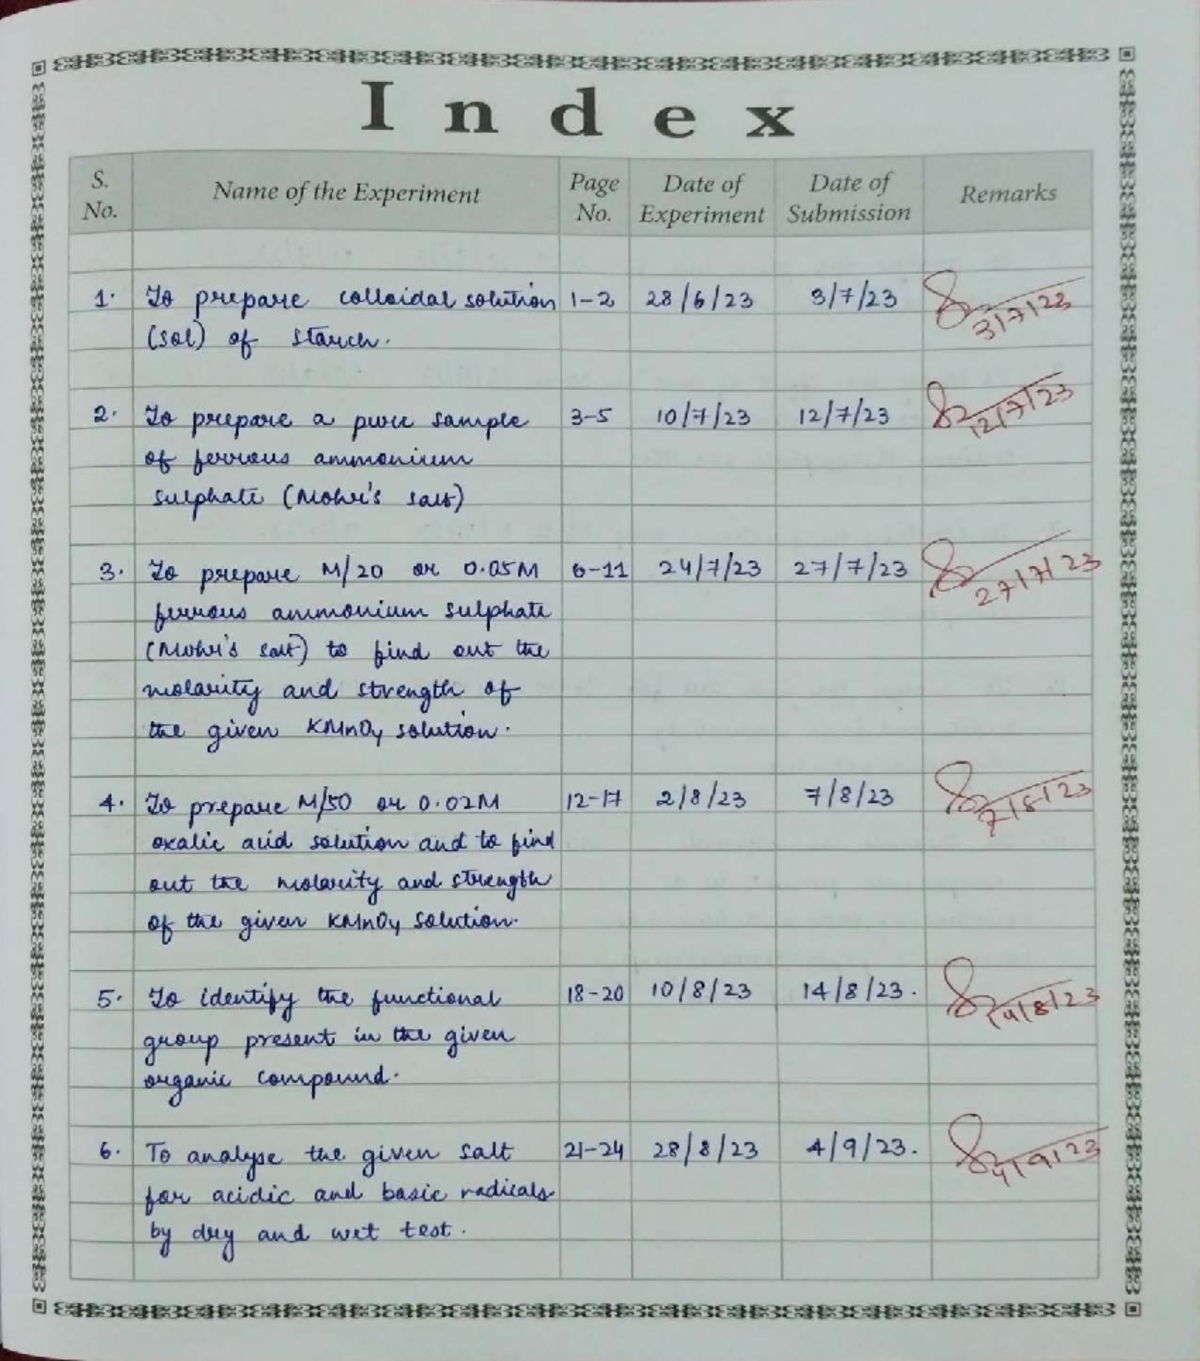 Index
S. No. Name of the Experiment Page No. Date of Experiment Date of Submission Remarks
1. To prepare colloidal solution 1-2 28/6/23 3/7/23 3/7/23
(sol) of starch.
2. To prepare a pure sample 3-5 10/7/23 12/7/23 12/7/23
of ferrous ammonium
sulphate (Mohr's salt)
3. To prepare M/20 or 0.05M 6-11 24/7/23 27/7/23 27/7/23
ferrous ammonium sulphate
(Mohr's salt) to find out the
molarity and strength of
the given KMnO4 solution.
4. To prepare M/50 or 0.02M 12-17 2/8/23 7/8/23 7/8/23
oxalic acid solution and to find
out the molarity and strength
of the given KMnO4 solution.
5. To identify the functional 18-20 10/8/23 14/8/23. 14/8/23
group present in the given
organic compound.
6. To analyse the given salt 21-24 28/8/23 4/9/23. 4/9/23
for acidic and basic radicals
by dry and wet test.